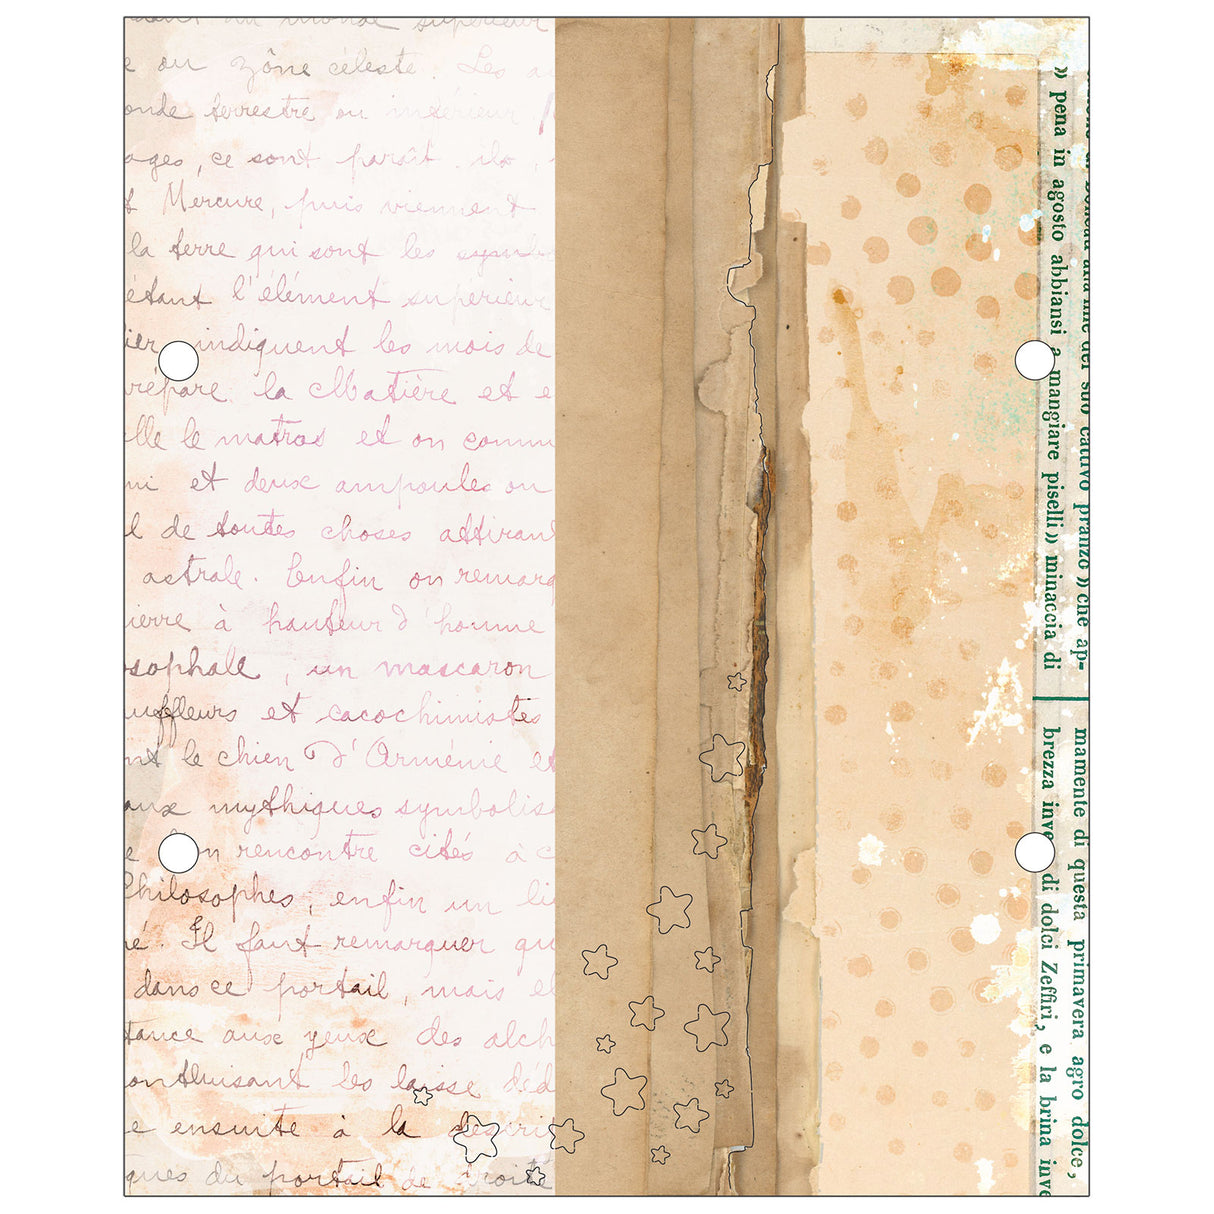 au monde supérieur
e au zône céleste. Les
onde terrestre ou inférieur
ages, ce sont paraît-ils,
t Mercure, puis viennent
la terre qui sont les symbo
étant l'élément supérieur
ier indiquent les mois de
répare la Matière et e
elle le matras et on comm
ni et deux ampoules on
l de toutes choses attirant
astrale. Enfin on remarq
ierre à hauteur d'homme
osophale, un mascaron
uffleurs et cacochimistes
nt le chien d'Arménie et
aux mythiques symbolisa
e on rencontre cités à c
Philosophes, enfin un li
né. Il faut remarquer qu
dans ce portail, mais el
tance aux yeux des alch
onduisant les laisse déd
e ensuite à la descri
ques du portail de droite
del suo cattivo pranzo» che ap-
» pena in agosto abbiansi a mangiare piselli» minaccia di
mamente di questa primavera agro dolce,
brezza inve di dolci Zeffiri, e la brina inve